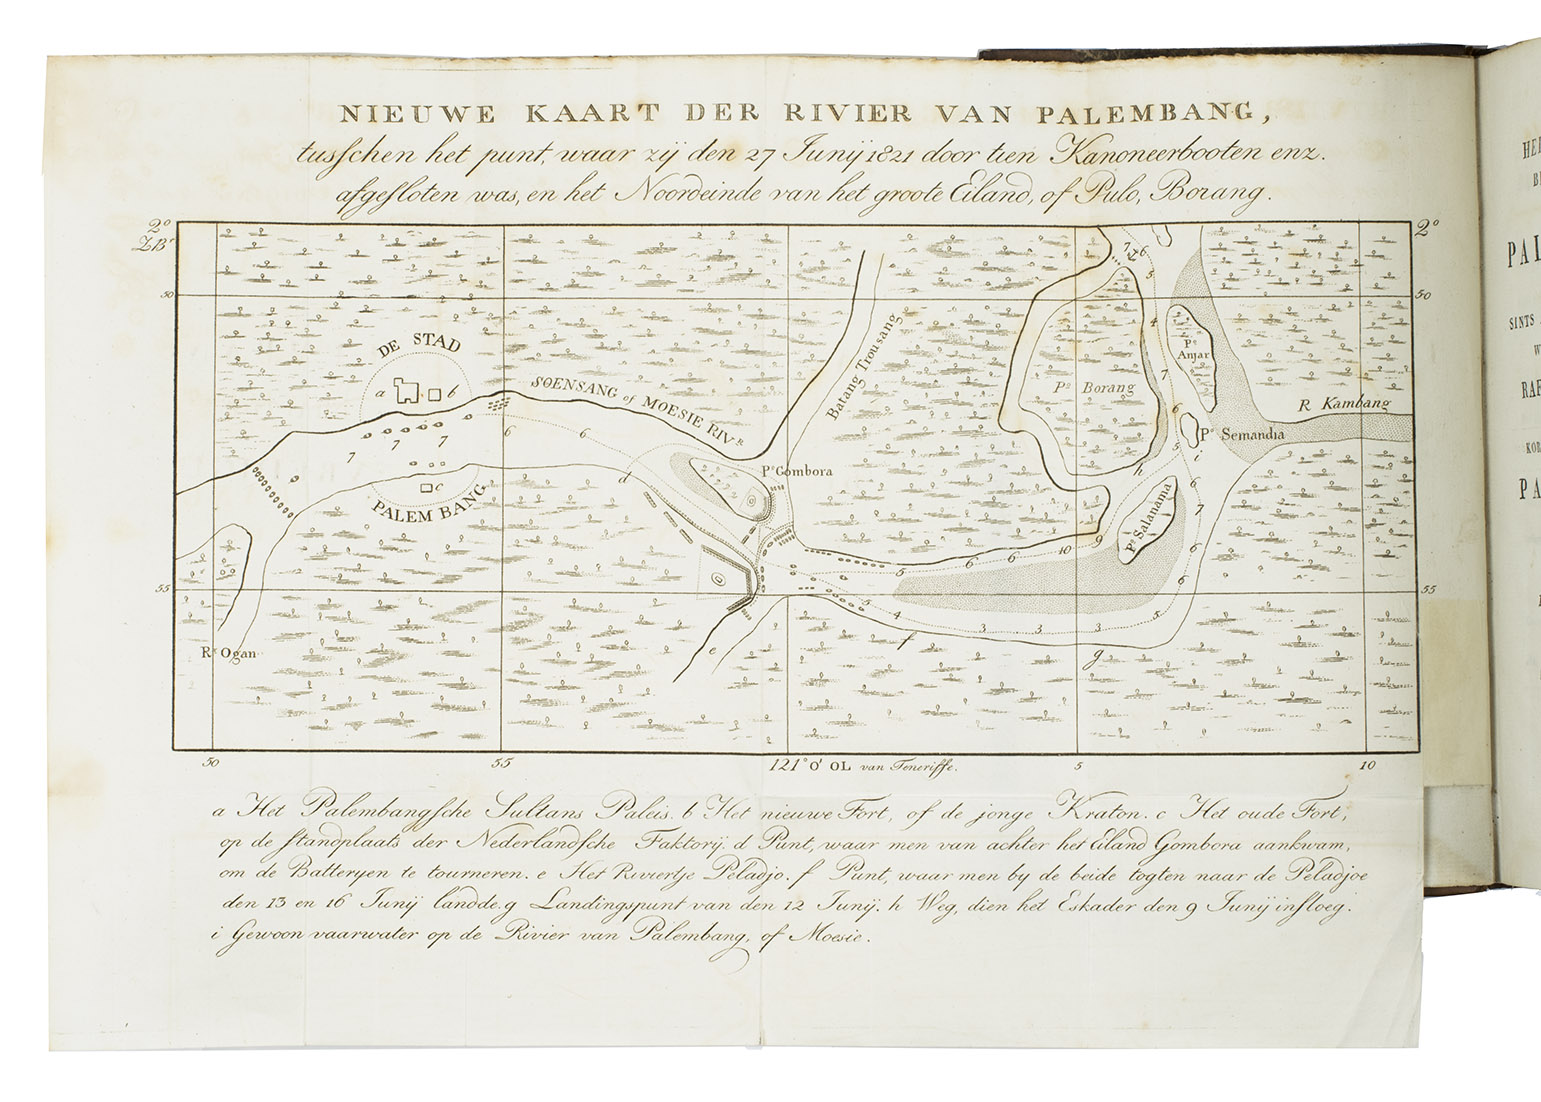 NIEUWE KAART DER RIVIER VAN PALEMBANG,
tusschen het punt, waar zij den 27 Junij 1821 door tien Kanoneerbooten enz.
afgesloten was, en het Noordeinde van het groote Eiland, of Pulo, Borang.
2° 2°
Z.Br
50 50
DE STAD
a b
SOENSANG of MOESIE RIVR
Batang Trousang
Po Anjar
Po Borang
R Kambang
Po Semandia
Po Gombora
Po Salanama
c
PALEMBANG
d
h
i
55 55
Rr Ogan
e
f
g
7 7 7 7
6 6
5 6 6 10 9
5 4 3 3 3 5 6 6 7 6
7 26
5 4 7 6 5
50 55 121° 0' OL van Teneriffe. 5 10
a Het Palembangsche Sultans Paleis. b Het nieuwe Fort, of de jonge Kraton. c Het oude Fort,
op de standplaats der Nederlandsche Faktory. d Punt, waar men van achter het Eiland Gombora aankwam,
om de Batteryen te tourneren. e Het Riviertje Peladjo. f Punt, waar men by de beide togten naar de Peladjoe
den 13 en 16 Junij landde. g Landingspunt van den 12 Junij. h Weg, dien het Eskader den 9 Junij insloeg.
i Gewoon vaarwater op de Rivier van Palembang, of Moesie.
HE
B
PAL
SINTS
W
RAF
KO
PA